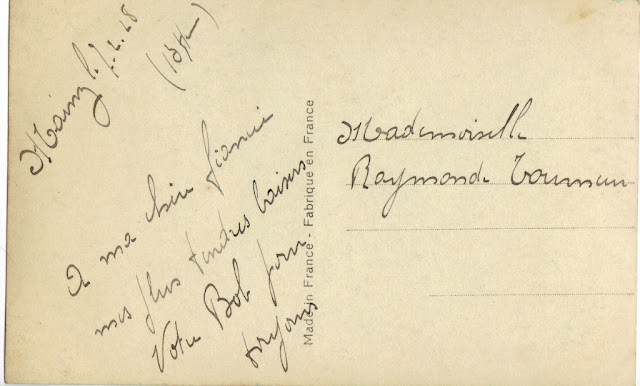 Mainz l. 7.4.48
(13h)
A ma chère fiancée
mes plus tendres baisers
Votre Bob pour
toujours
Made in France - Fabriqué en France
Mademoiselle
Raymonde